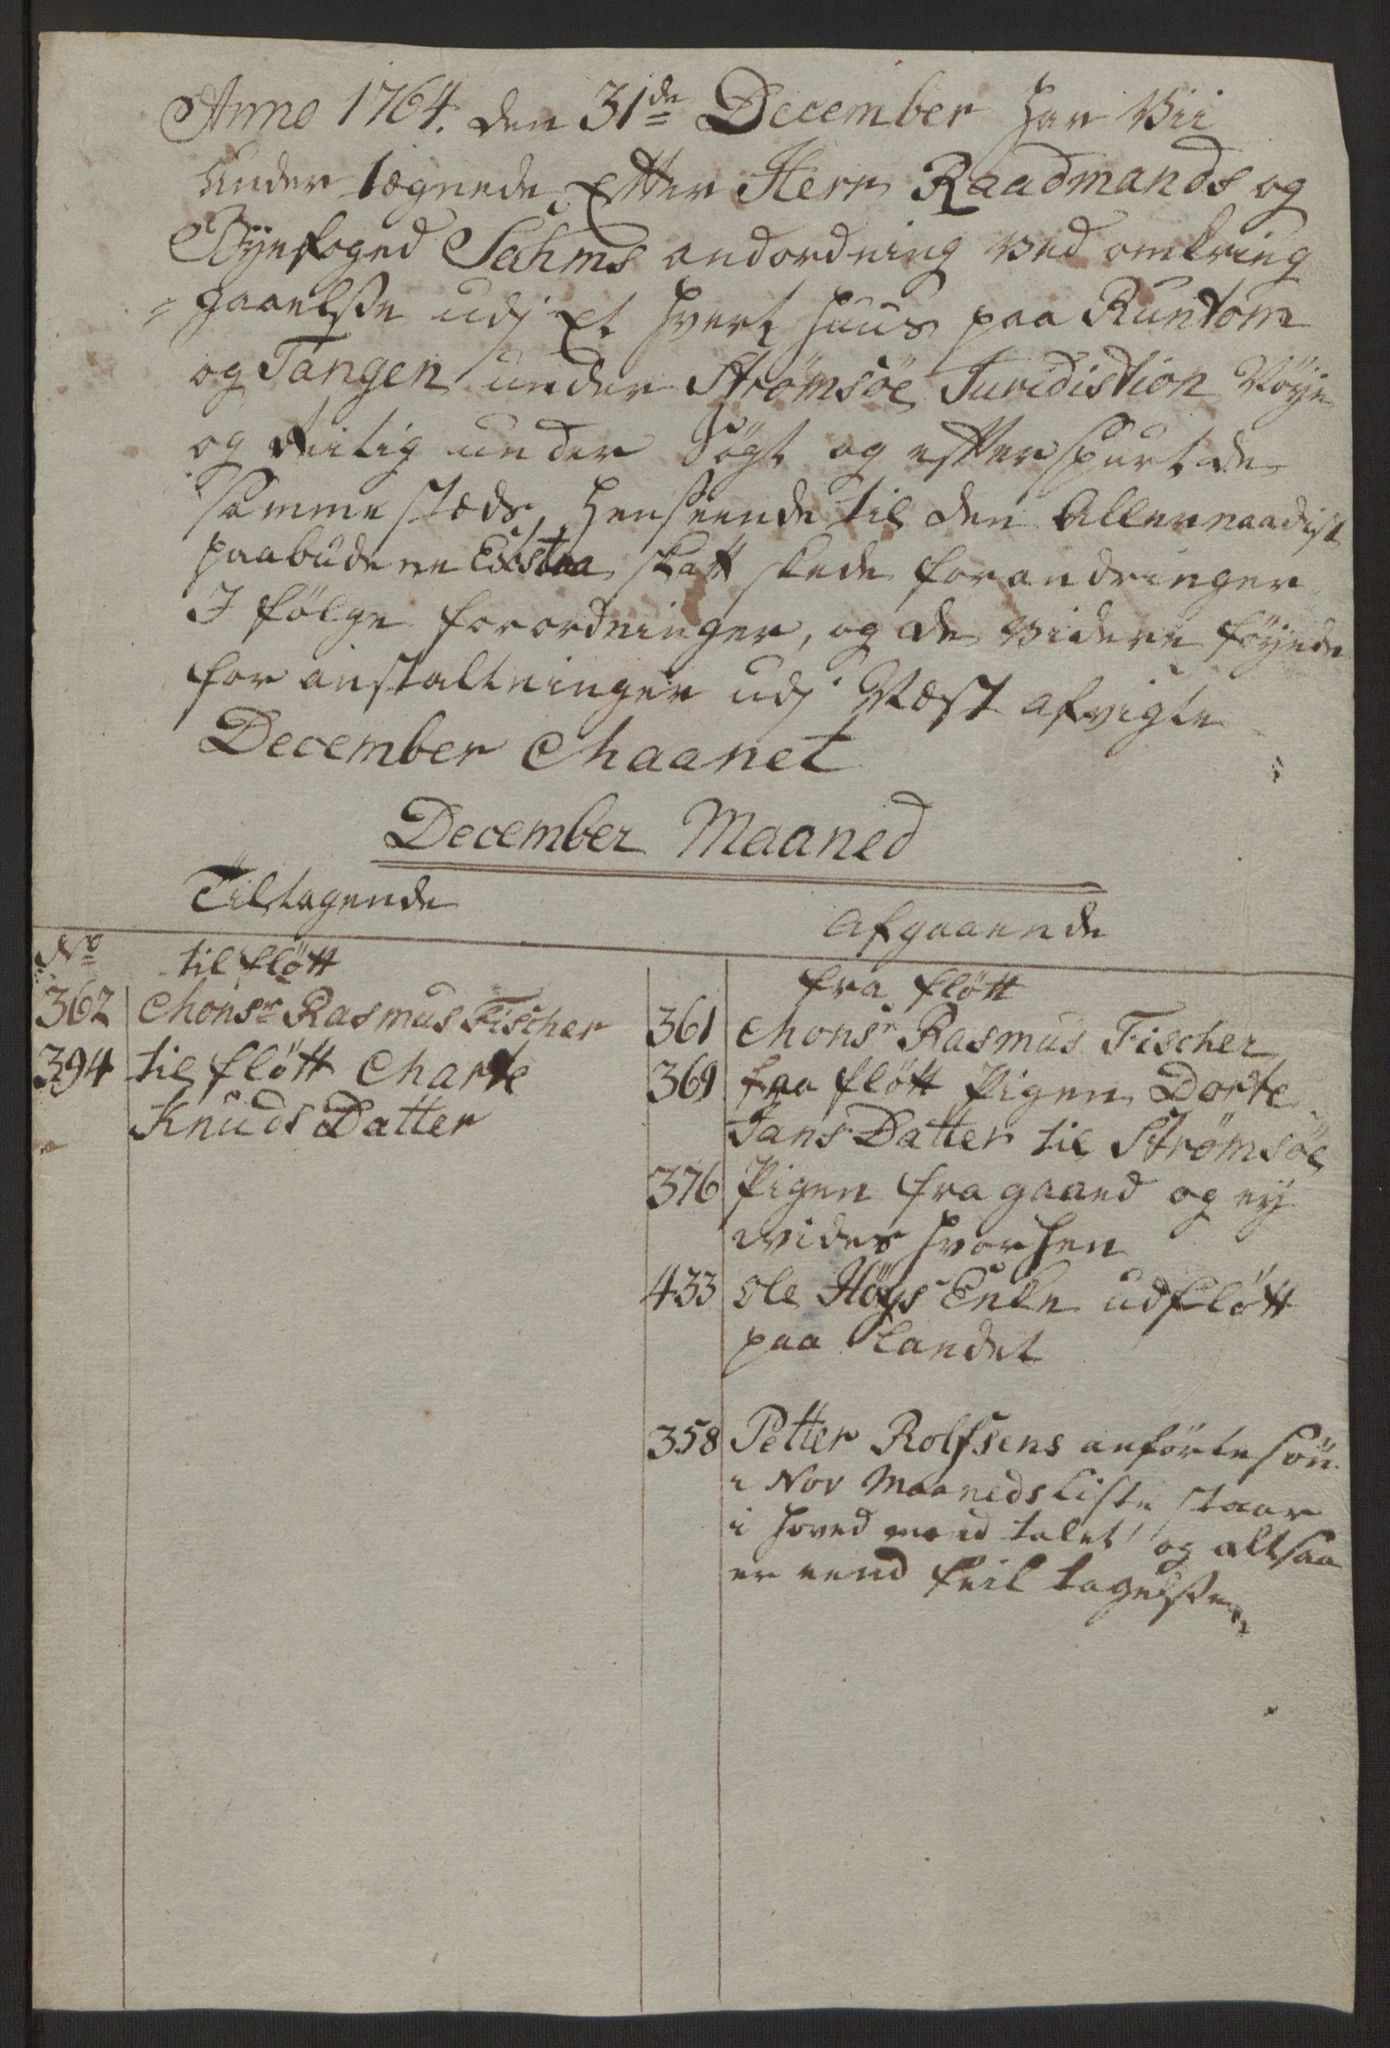 Anno 1764. den 31de December har Vii
Under tegnede Efter Herr Raadmands og
Byefoged Sahms andordning ved omkring
= gaaelsse udj Et hvert Huus paa Runtom
og Tangen under Strömsöe Juridistion Nöye
og flitig under Sögt og efterspurt de
samme stæds, henseende til den Allernaadist
paabudene Exstra skatt skede forandringer
I fölge forordninger, og de videre föyede
for anstaltninger udj Næst afvigte
December Maanet
December Maaned
Tiltagende
Afgaaende
No
til flött
fra flött
362 Monsr Rasmus Fischer
361 Monsr Rasmus Fischer
394 til flött Marte
Knuds Datter
369 fra flött Pigen Dorte
Jans Datter til Strömsöe
376 Pigen fra gaaed og ej
vides hvorhen
433 Ole Höys Enke udflött
paa Landet
358 Petter Rolfsens anförte sön
i Nov Maaneds Liste staar
i hoved mand talet og altsaa
er eend feil tagelsse